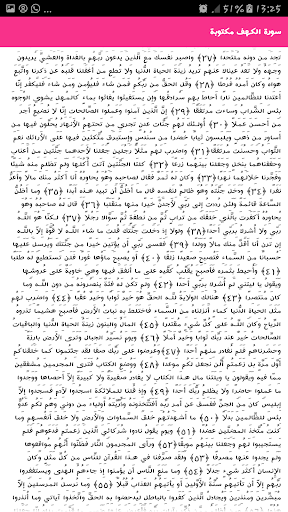 51% 13:25
سورة الكهف مكتوبة
تجد من دونه ملتحدا ﴿٢٧﴾ واصبر نفسك مع الذين يدعون ربهم بالغداة والعشي يريدون
وجهه ولا تعد عيناك عنهم تريد زينة الحياة الدنيا ولا تطع من أغفلنا قلبه عن ذكرنا واتبع
هواه وكان أمره فرطا ﴿٢٨﴾ وقل الحق من ربكم فمن شاء فليؤمن ومن شاء فليكفر إنا
أعتدنا للظالمين نارا أحاط بهم سرادقها وإن يستغيثوا يغاثوا بماء كالمهل يشوي الوجوه
بئس الشراب وساءت مرتفقا ﴿٢٩﴾ إن الذين آمنوا وعملوا الصالحات إنا لا نضيع أجر
من أحسن عملا ﴿٣٠﴾ أولئك لهم جنات عدن تجري من تحتهم الأنهار يحلون فيها من
أساور من ذهب ويلبسون ثيابا خضرا من سندس وإستبرق متكئين فيها على الأرائك نعم
الثواب وحسنت مرتفقا ﴿٣١﴾ واضرب لهم مثلا رجلين جعلنا لأحدهما جنتين من أعناب
وحففناهما بنخل وجعلنا بينهما زرعا ﴿٣٢﴾ كلتا الجنتين آتت أكلها ولم تظلم منه شيئا
وفجرنا خلالهما نهرا ﴿٣٣﴾ وكان له ثمر فقال لصاحبه وهو يحاوره أنا أكثر منك مالا وأعز
نفرا ﴿٣٤﴾ ودخل جنته وهو ظالم لنفسه قال ما أظن أن تبيد هذه أبدا ﴿٣٥﴾ وما أظن
الساعة قائمة ولئن رددت إلى ربي لأجدن خيرا منها منقلبا ﴿٣٦﴾ قال له صاحبه وهو
يحاوره أكفرت بالذي خلقك من تراب ثم من نطفة ثم سواك رجلا ﴿٣٧﴾ لكنا هو الله
ربي ولا أشرك بربي أحدا ﴿٣٨﴾ ولولا إذ دخلت جنتك قلت ما شاء الله لا قوة إلا بالله
إن ترن أنا أقل منك مالا وولدا ﴿٣٩﴾ فعسى ربي أن يؤتين خيرا من جنتك ويرسل عليها
حسبانا من السماء فتصبح صعيدا زلقا ﴿٤٠﴾ أو يصبح ماؤها غورا فلن تستطيع له طلبا
﴿٤١﴾ وأحيط بثمره فأصبح يقلب كفيه على ما أنفق فيها وهي خاوية على عروشها
ويقول يا ليتني لم أشرك بربي أحدا ﴿٤٢﴾ ولم تكن له فئة ينصرونه من دون الله وما
كان منتصرا ﴿٤٣﴾ هنالك الولاية لله الحق هو خير ثوابا وخير عقبا ﴿٤٤﴾ واضرب لهم
مثل الحياة الدنيا كماء أنزلناه من السماء فاختلط به نبات الأرض فأصبح هشيما تذروه
الرياح وكان الله على كل شيء مقتدرا ﴿٤٥﴾ المال والبنون زينة الحياة الدنيا والباقيات
الصالحات خير عند ربك ثوابا وخير أملا ﴿٤٦﴾ ويوم نسير الجبال وترى الأرض بارزة
وحشرناهم فلم نغادر منهم أحدا ﴿٤٧﴾ وعرضوا على ربك صفا لقد جئتمونا كما خلقناكم
أول مرة بل زعمتم ألن نجعل لكم موعدا ﴿٤٨﴾ ووضع الكتاب فترى المجرمين مشفقين
مما فيه ويقولون يا ويلتنا مال هذا الكتاب لا يغادر صغيرة ولا كبيرة إلا أحصاها ووجدوا
ما عملوا حاضرا ولا يظلم ربك أحدا ﴿٤٩﴾ وإذ قلنا للملائكة اسجدوا لآدم فسجدوا إلا
إبليس كان من الجن ففسق عن أمر ربه أفتتخذونه وذريته أولياء من دوني وهم لكم عدو
بئس للظالمين بدلا ﴿٥٠﴾ ما أشهدتهم خلق السماوات والأرض ولا خلق أنفسهم وما
كنت متخذ المضلين عضدا ﴿٥١﴾ ويوم يقول نادوا شركائي الذين زعمتم فدعوهم فلم
يستجيبوا لهم وجعلنا بينهم موبقا ﴿٥٢﴾ ورأى المجرمون النار فظنوا أنهم مواقعوها
ولم يجدوا عنها مصرفا ﴿٥٣﴾ ولقد صرفنا في هذا القرآن للناس من كل مثل وكان
الإنسان أكثر شيء جدلا ﴿٥٤﴾ وما منع الناس أن يؤمنوا إذ جاءهم الهدى ويستغفروا
ربهم إلا أن تأتيهم سنة الأولين أو يأتيهم العذاب قبلا ﴿٥٥﴾ وما نرسل المرسلين إلا
مبشرين ومنذرين ويجادل الذين كفروا بالباطل ليدحضوا به الحق واتخذوا آياتي وما أنذروا